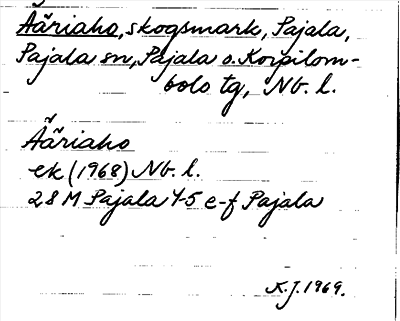 Ääriaho, skogsmark, Pajala,
Pajala sn, Pajala o. Korpilom-
bolo tg, Nb. l.
Ääriaho
ek (1968) Nb. l.
28 M Pajala 4-5 e-f Pajala
K.J. 1969.